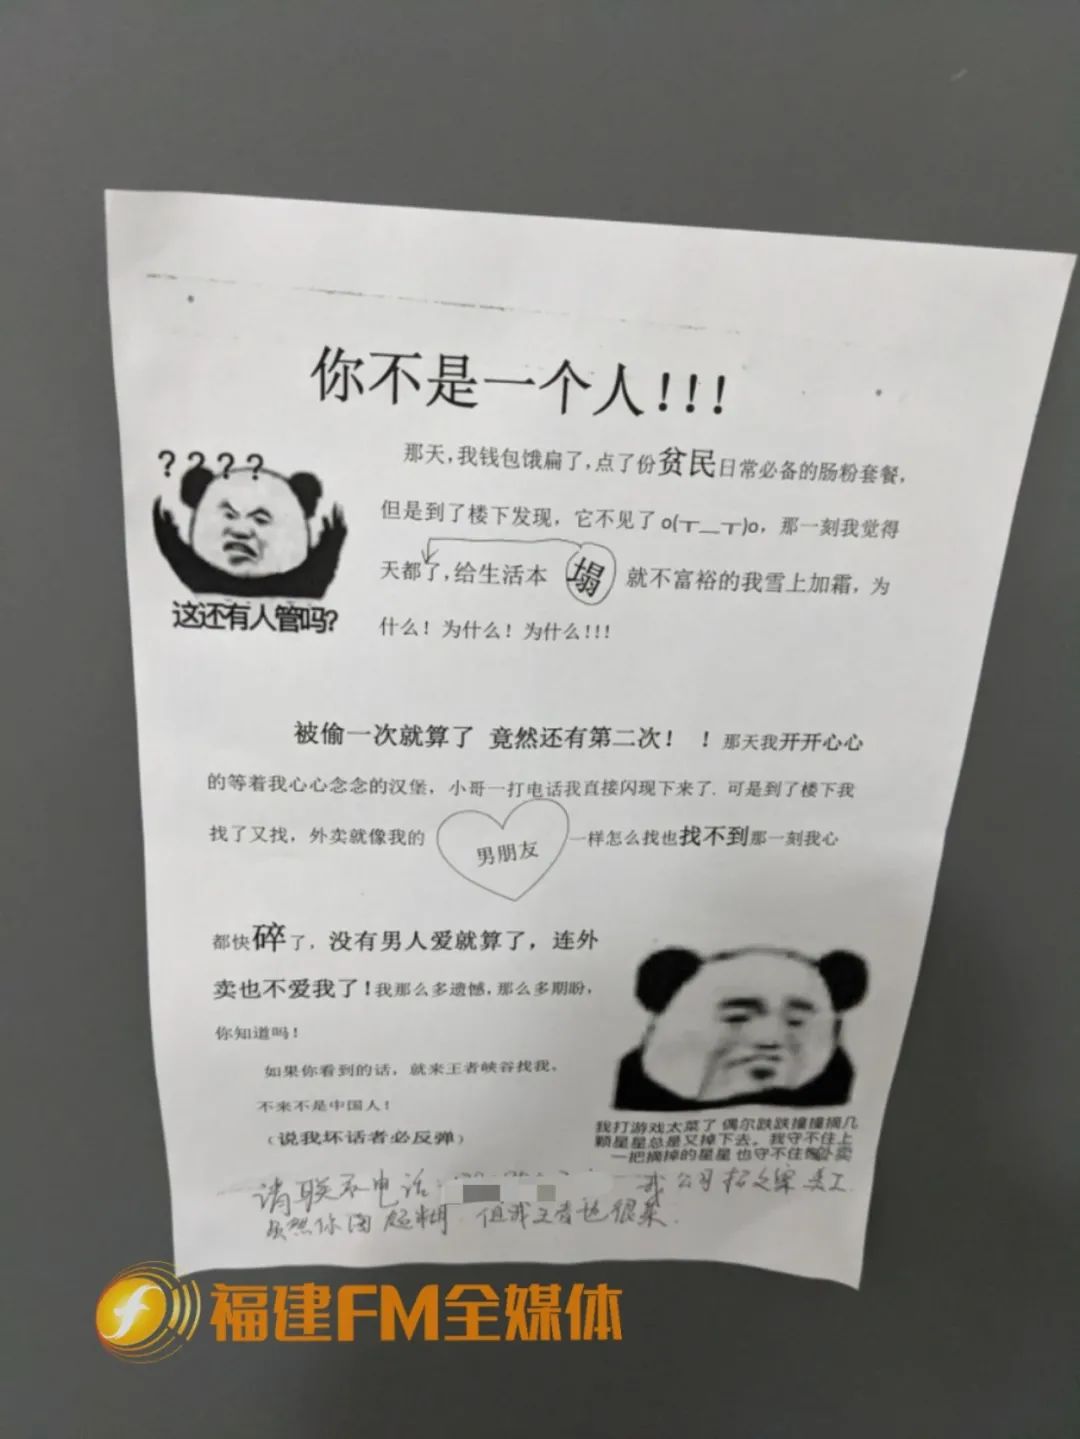 你不是一个人！！！
？？？？
这还有人管吗？
那天，我钱包饿扁了，点了份贫民日常必备的肠粉套餐，
但是到了楼下发现，它不见了o(╥﹏╥)o，那一刻我觉得
天都了，给生活本 塌 就不富裕的我雪上加霜，为
什么！为什么！为什么！！！
被偷一次就算了 竟然还有第二次！ ！那天我开开心心
的等着我心心念念的汉堡，小哥一打电话我直接闪现下来了. 可是到了楼下我
找了又找，外卖就像我的 男朋友 一样怎么找也找不到那一刻我心
都快碎了，没有男人爱就算了，连外
卖也不爱我了！我那么多遗憾，那么多期盼，
你知道吗！
如果你看到的话，就来王者峡谷找我，
不来不是中国人！
（说我坏话者必反弹）
我打游戏太菜了 偶尔跌跌撞撞摘几
颗星星总是又掉下去。我守不住上
一把摘掉的星星 也守不住俺外卖
请联系电话： 我公司招文案美工
虽然你图超糊 但我王者也很菜.
福建FM全媒体